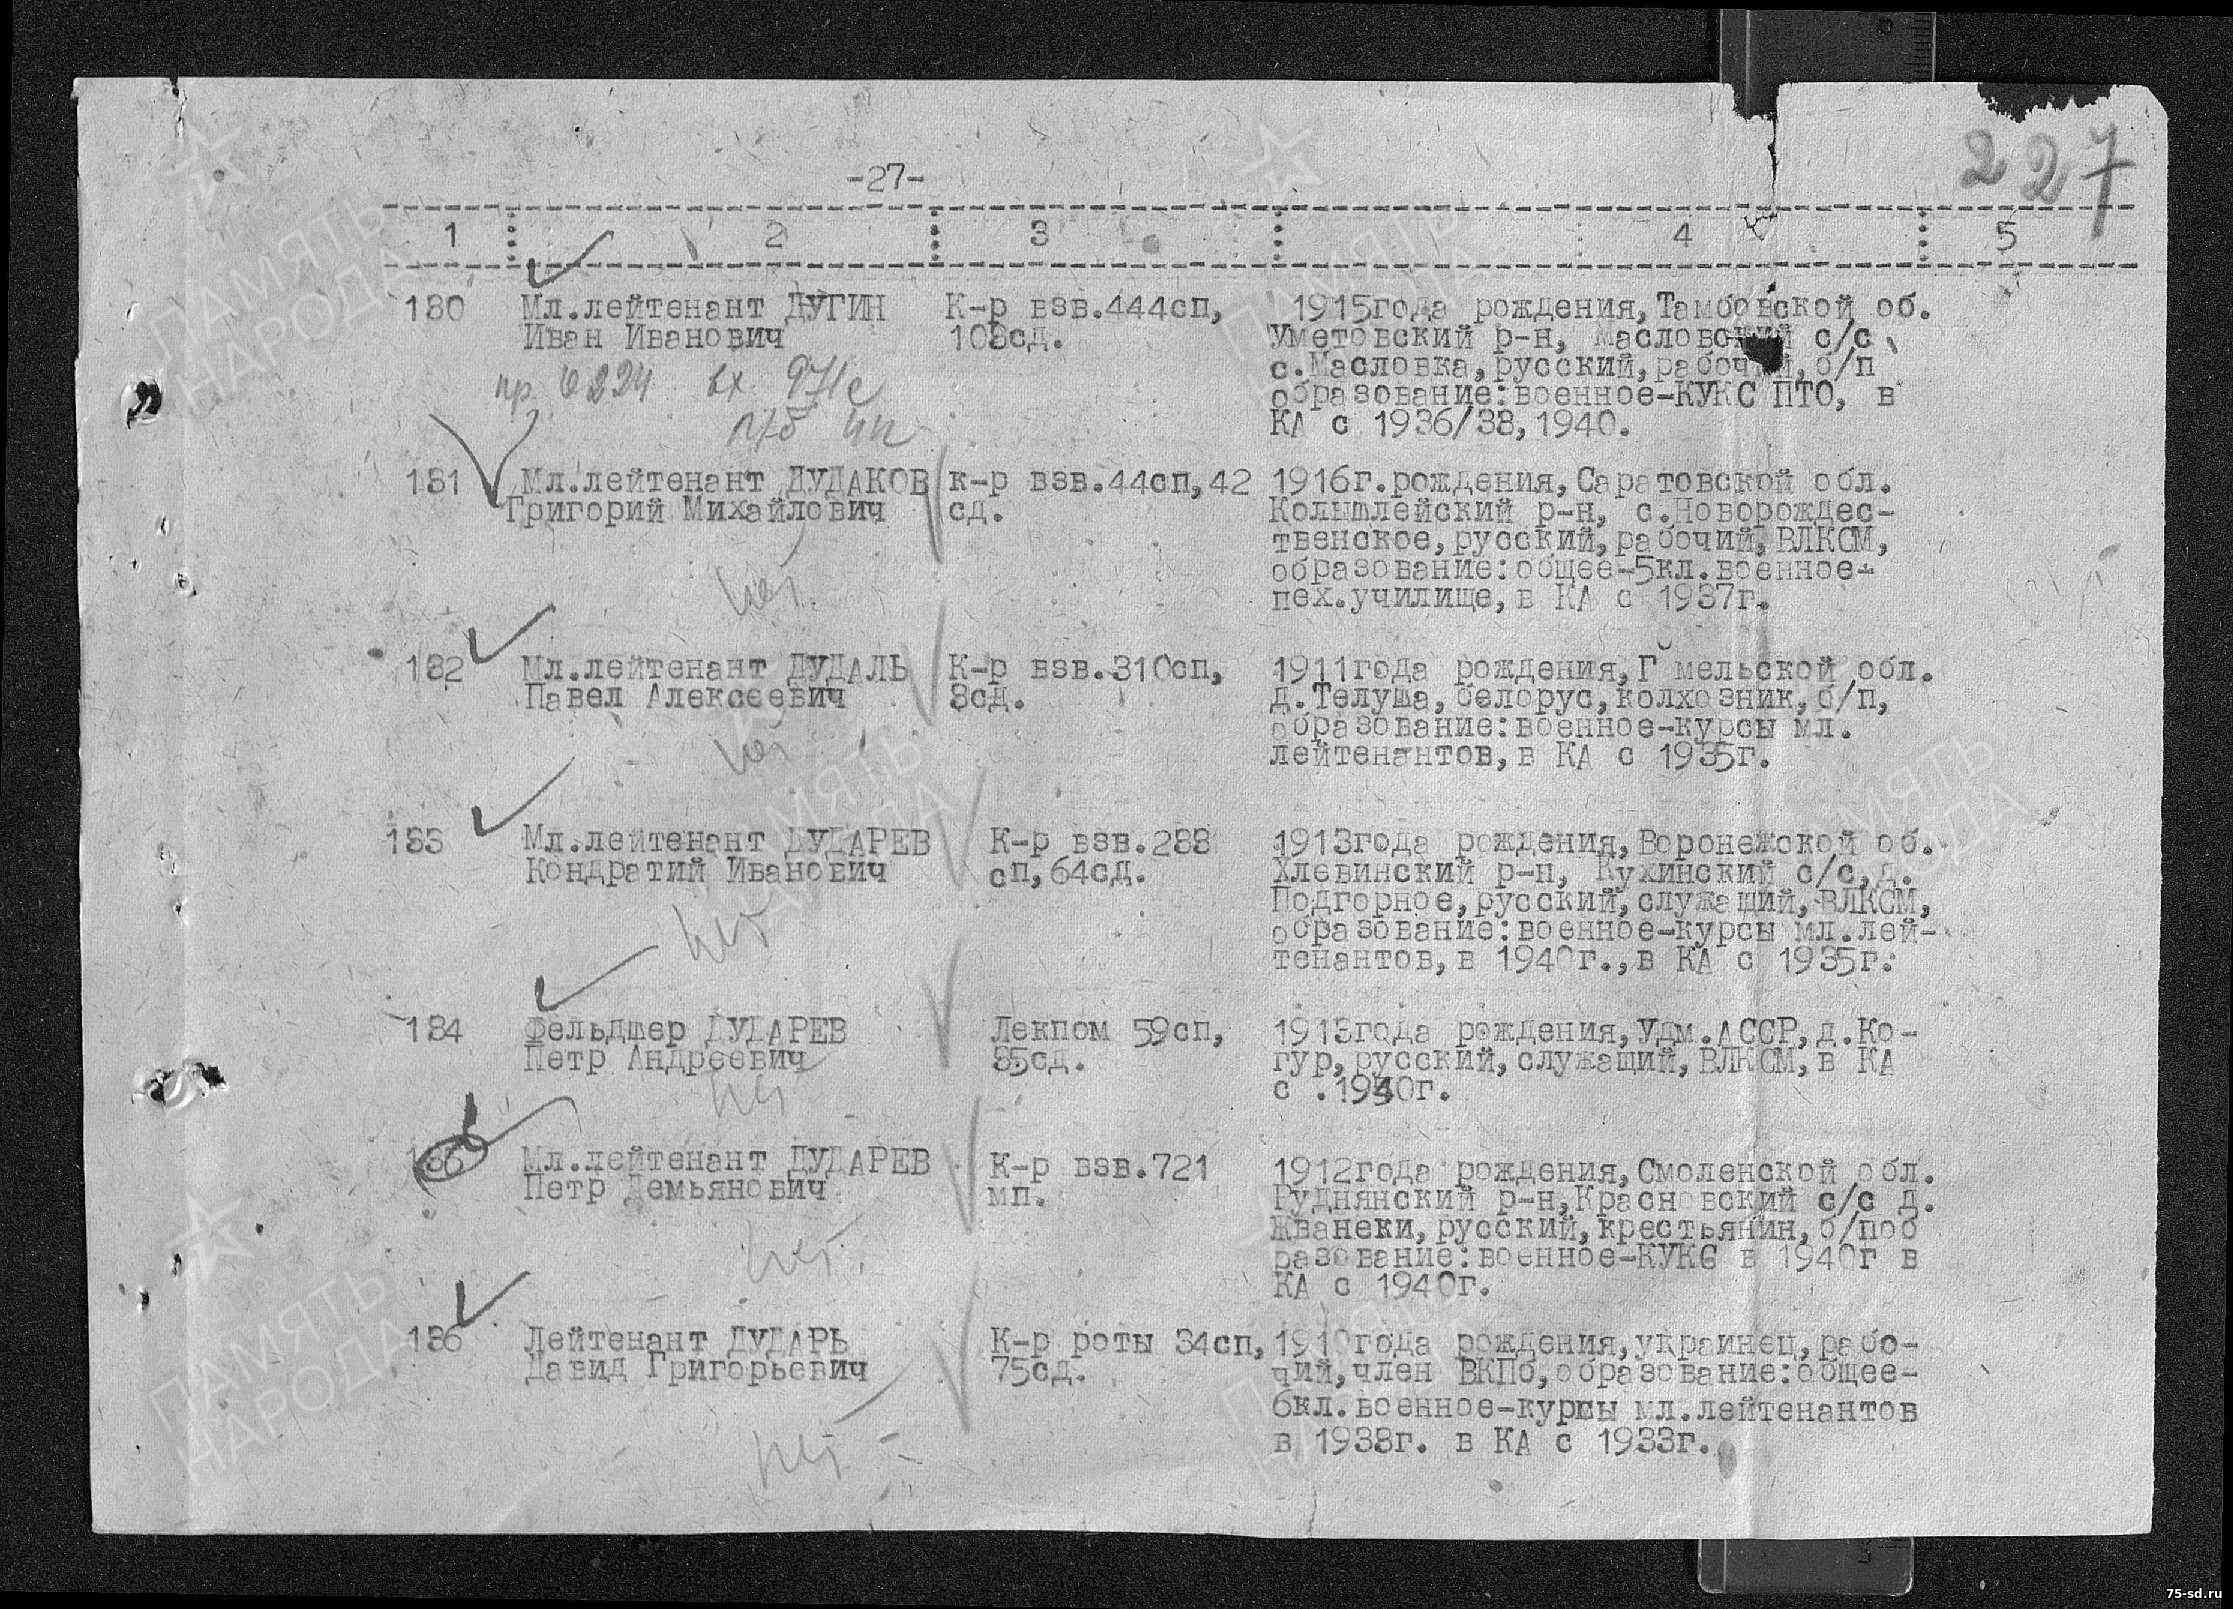 227
-27-
1 2 3 4 5
180 Мл.лейтенант ДУГИН К-р взв.444сп, 1915года рождения,Тамбовской об.
Иван Иванович 108сд. Уметовский р-н, Масловский с/с,
с.Масловка,русский,рабочий,б/п
пр. 0224 вх. 971с
образование:военное-КУКС ПТО, в
КА с 1936/38,1940.
181 Мл.лейтенант ДУДАКОВ к-р взв.44сп,42 1916г.рождения,Саратовской обл.
Григорий Михайлович сд. Колышлейский р-н, с.Новорождес-
твенское,русский,рабочий,ВЛКСМ,
образование:общее-5кл.военное-
нет.
пех.училище,в КА с 1937г.
182 Мл.лейтенант ДУДАЛЬ К-р взв.310сп, 1911года рождения,Г мельской обл.
Павел Алексеевич 8сд. д.Телуша,белорус,колхозник,б/п,
образование:военное-курсы мл.
нет
лейтенантов,в КА с 1935г.
183 Мл.лейтенант ДУДАРЕВ К-р взв.288 1913года рождения,Воронежской об.
Кондратий Иванович сп,64сд. Хлевинский р-н, Вухинский с/с,д.
Подгорное,русский,служащий,ВЛКСМ,
нет
образование:военное-курсы мл.лей-
тенантов,в 1940г.,в КА с 1935г.
184 Фельдшер ДУДАРЕВ Лекпом 59сп, 1913года рождения,Удм.АССР,д.Ко-
Петр Андреевич 85сд. гур,русский,служащий,ВЛКСМ,в КА
нет
с .1940г.
185 Мл.лейтенант ДУДАРЕВ К-р взв.721 1912года рождения,Смоленской обл.
Петр Демьянович мп. Руднянский р-н,Красновский с/с д.
Жванеки,русский,крестьянин,б/поб
нет.
разование:военное-КУКС в 1940г в
КА с 1940г.
186 Лейтенант ДУДАРЬ К-р роты 34сп, 1910года рождения,украинец,рабо-
Давид Григорьевич 75сд. чий,член ВКПб,образование:общее-
6кл.военное-курсы мл.лейтенантов
нет -
в 1938г. в КА с 1933г.
ПАМЯТЬ
НАРОДА
75-sd.ru